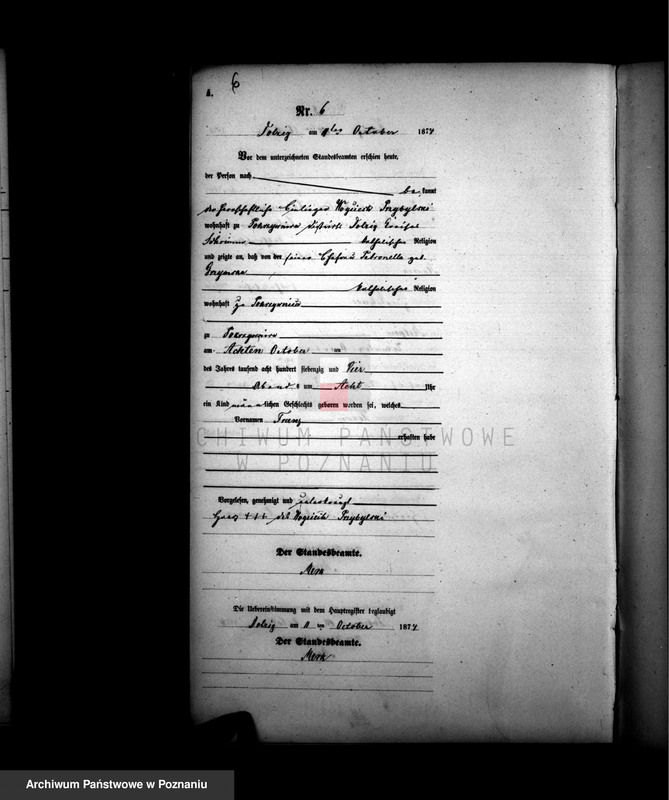 A.
6
Nr. 6
Dolzig am ten October 1874
Vor dem unterzeichneten Standesbeamten erschien heute,
der Person nach
be kannt
der herrschaftliche Einlieger Woyciech Przybylski
wohnhaft zu Pokrzywnica District Dolzig Kreises
Schrimm katholischer Religion
und zeigte an, daß von der seiner Ehefrau Petronella geb.
katholischer Religion
wohnhaft zu Pokrzywnica
zu Pokrzywnica
am Achten October
des Jahres tausend acht hundert siebenzig und Vier
Abends um Acht Uhr
ein Kind männlichen Geschlechts geboren worden sei, welches
Vornamen Franz
erhalten habe
ARCHIWUM PAŃSTWOWE
W POZNANIU
Vorgelesen, genehmigt und unterkreuzt
+++ des Woyciech Przybylski
Der Standesbeamte.
Die Uebereinstimmung mit dem Hauptregister beglaubigt
Dolzig am ten October 1874
Der Standesbeamte.
Archiwum Państwowe w Poznaniu